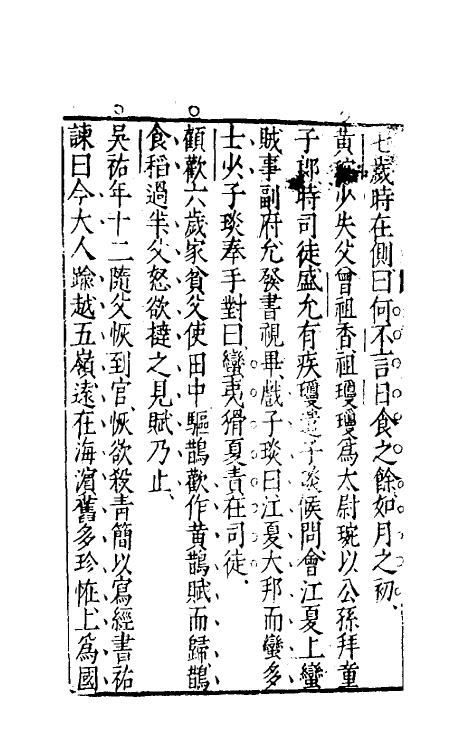 七歲時在側曰何不言日食之餘如月之初
黃琬少失父曾祖香祖瓊瓊爲太尉琬以公孫拜童
子郎時司徒盛允有疾瓊遣子琰候問會江夏上蠻
賊事副府允發書視畢戲子琰曰江夏大邦而蠻多
士少子琰奉手對曰蠻夷猾夏責在司徒
顧歡六歲家貧父使田中驅鵲歡作黃鵲賦而歸鵲
食稻過半父怒欲撻之見賦乃止
吳祐年十二隨父恢到官恢欲殺青簡以寫經書祐
諫曰今大人踰越五嶺遠在海濱舊多珍恠上爲國